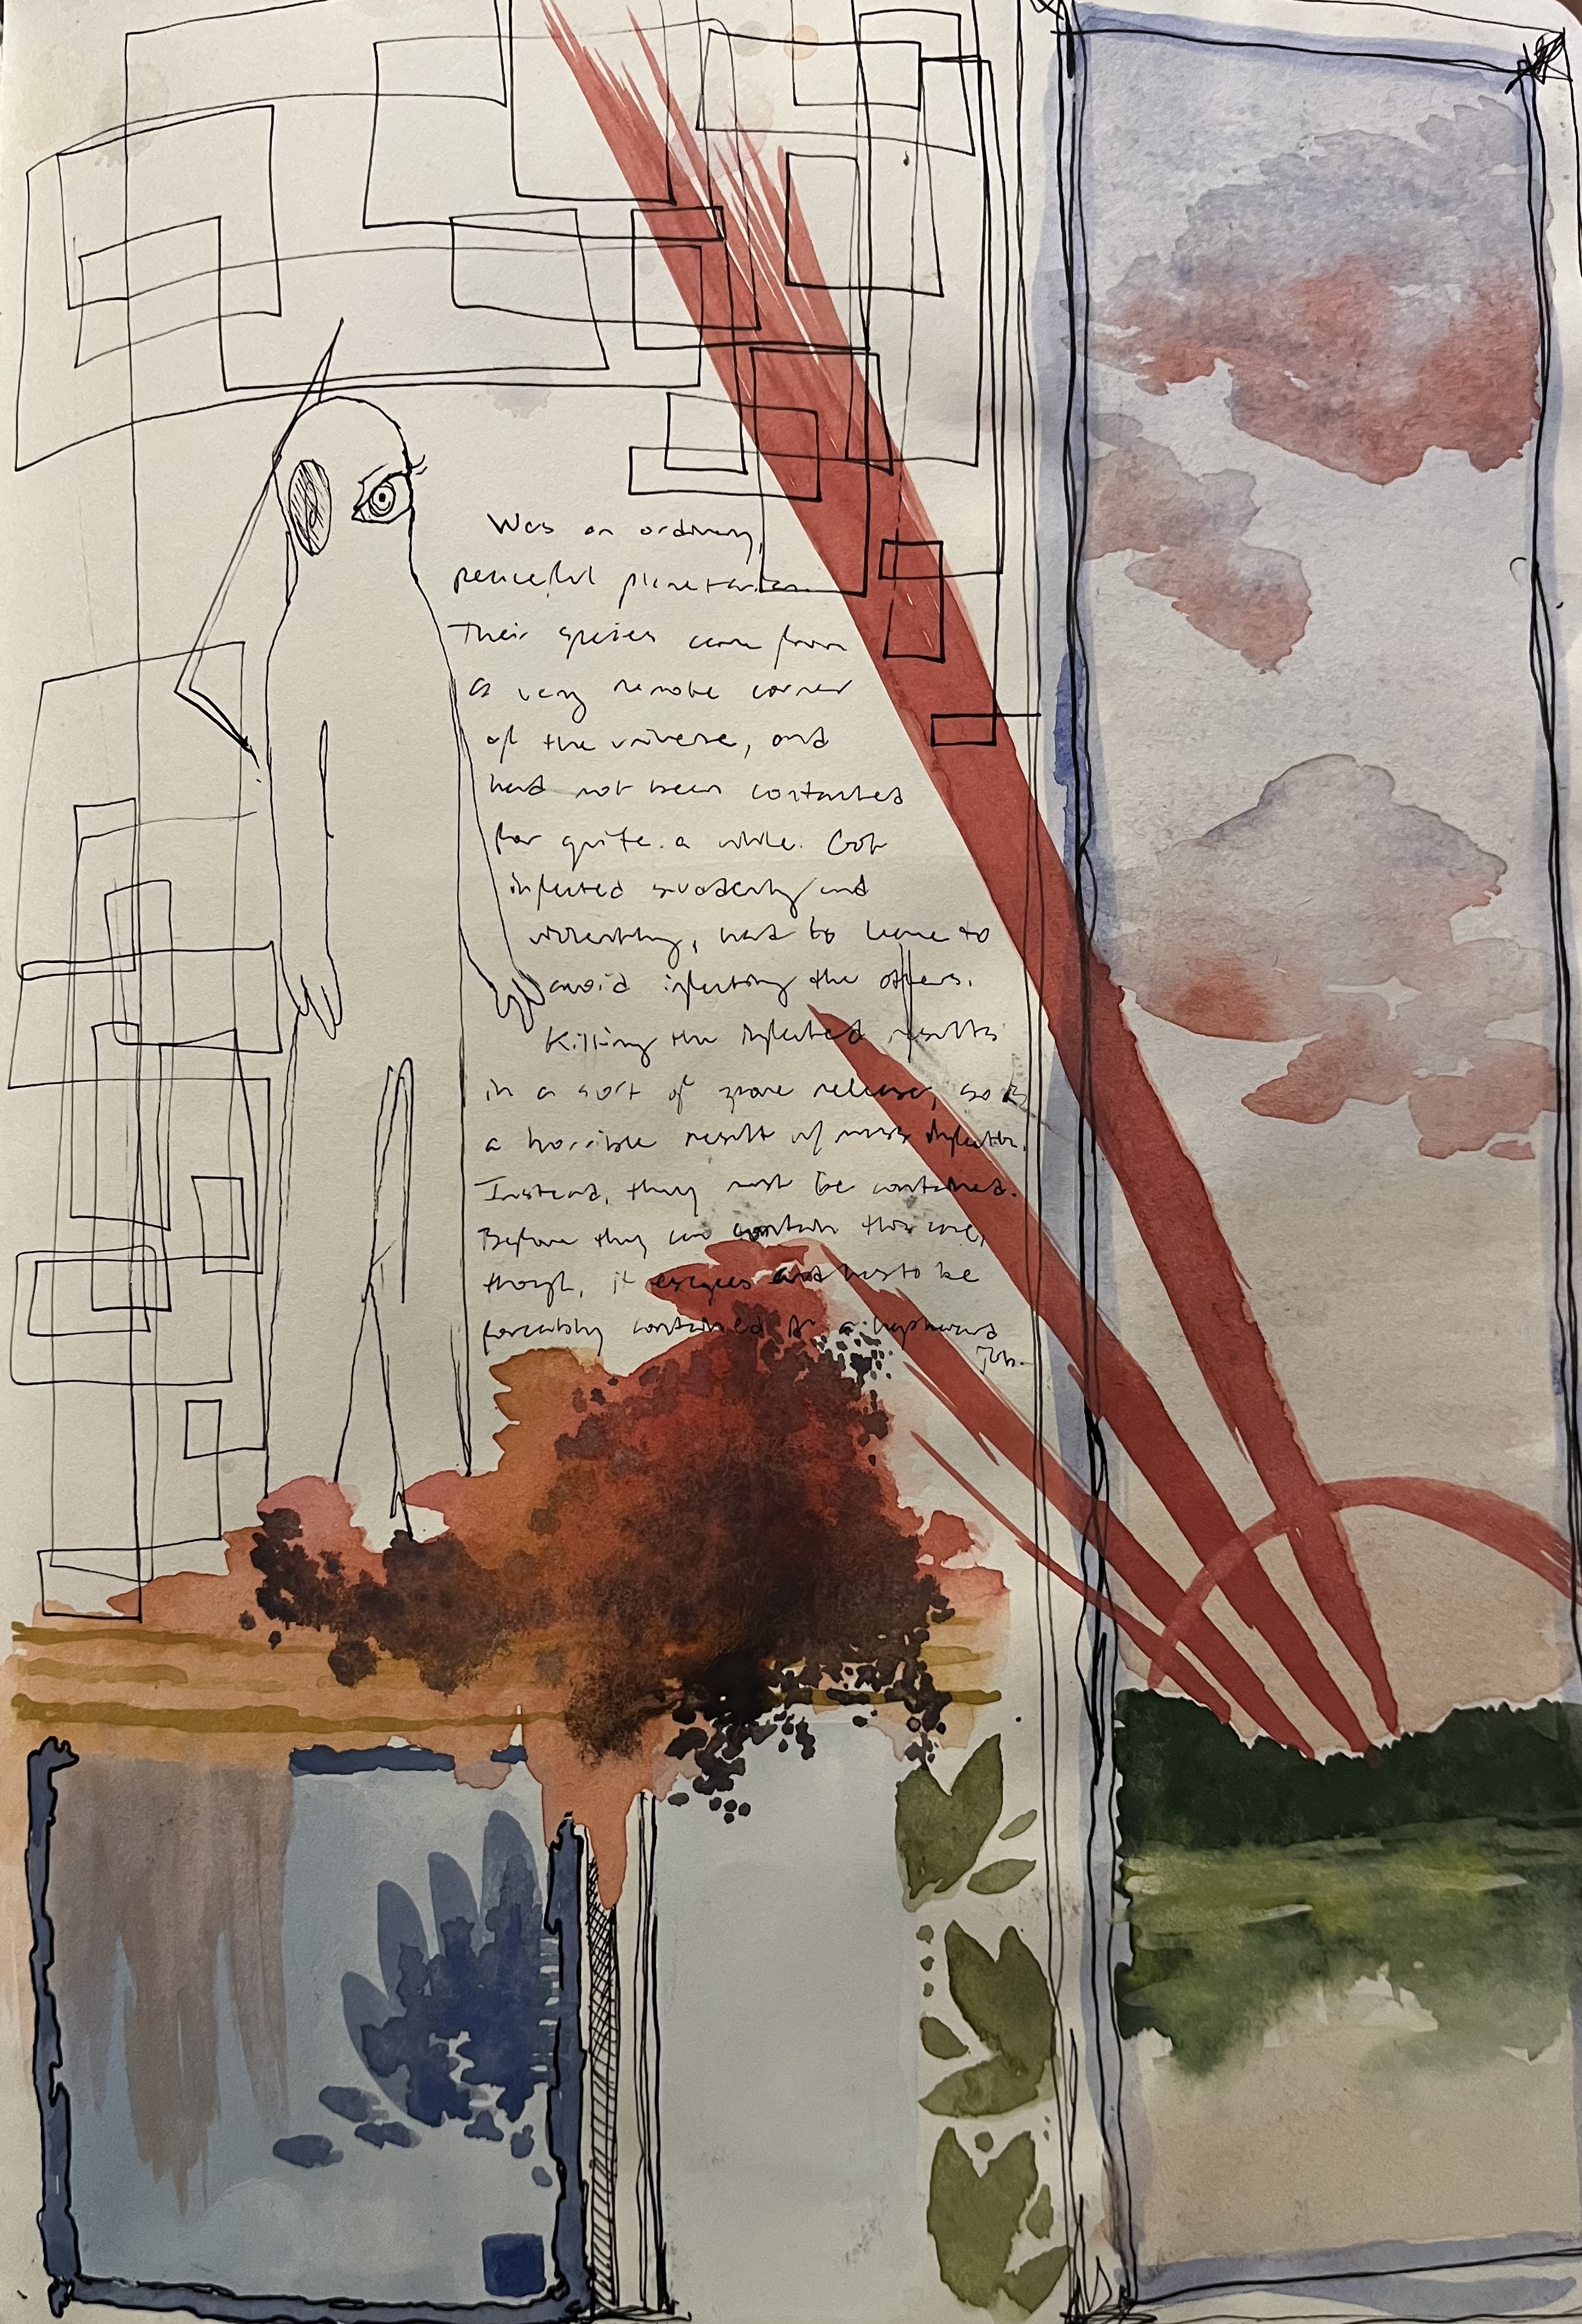 Was an ordinary,
peaceful planetarian.
Their species came from
a very remote corner
of the universe, and
had not been contacted
for quite a while. Got
infected suddenly and
violently, had to leave to
avoid infecting the others.
Killing the infected results
in a sort of spore release, so is
a horrible result of mass infection.
Instead, they must be contained.
Before they can contain this one,
though, it escapes and has to be
forceably contained in a haphazard
job.